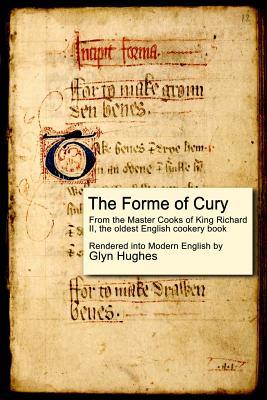 12
Incipit forma.
ffor to make groun
den benes.
Take benes & drye hem i
an oven
The Forme of Cury
From the Master Cooks of King Richard
II, the oldest English cookery book
Rendered into Modern English by
Glyn Hughes
ffor to make drawen
benes.